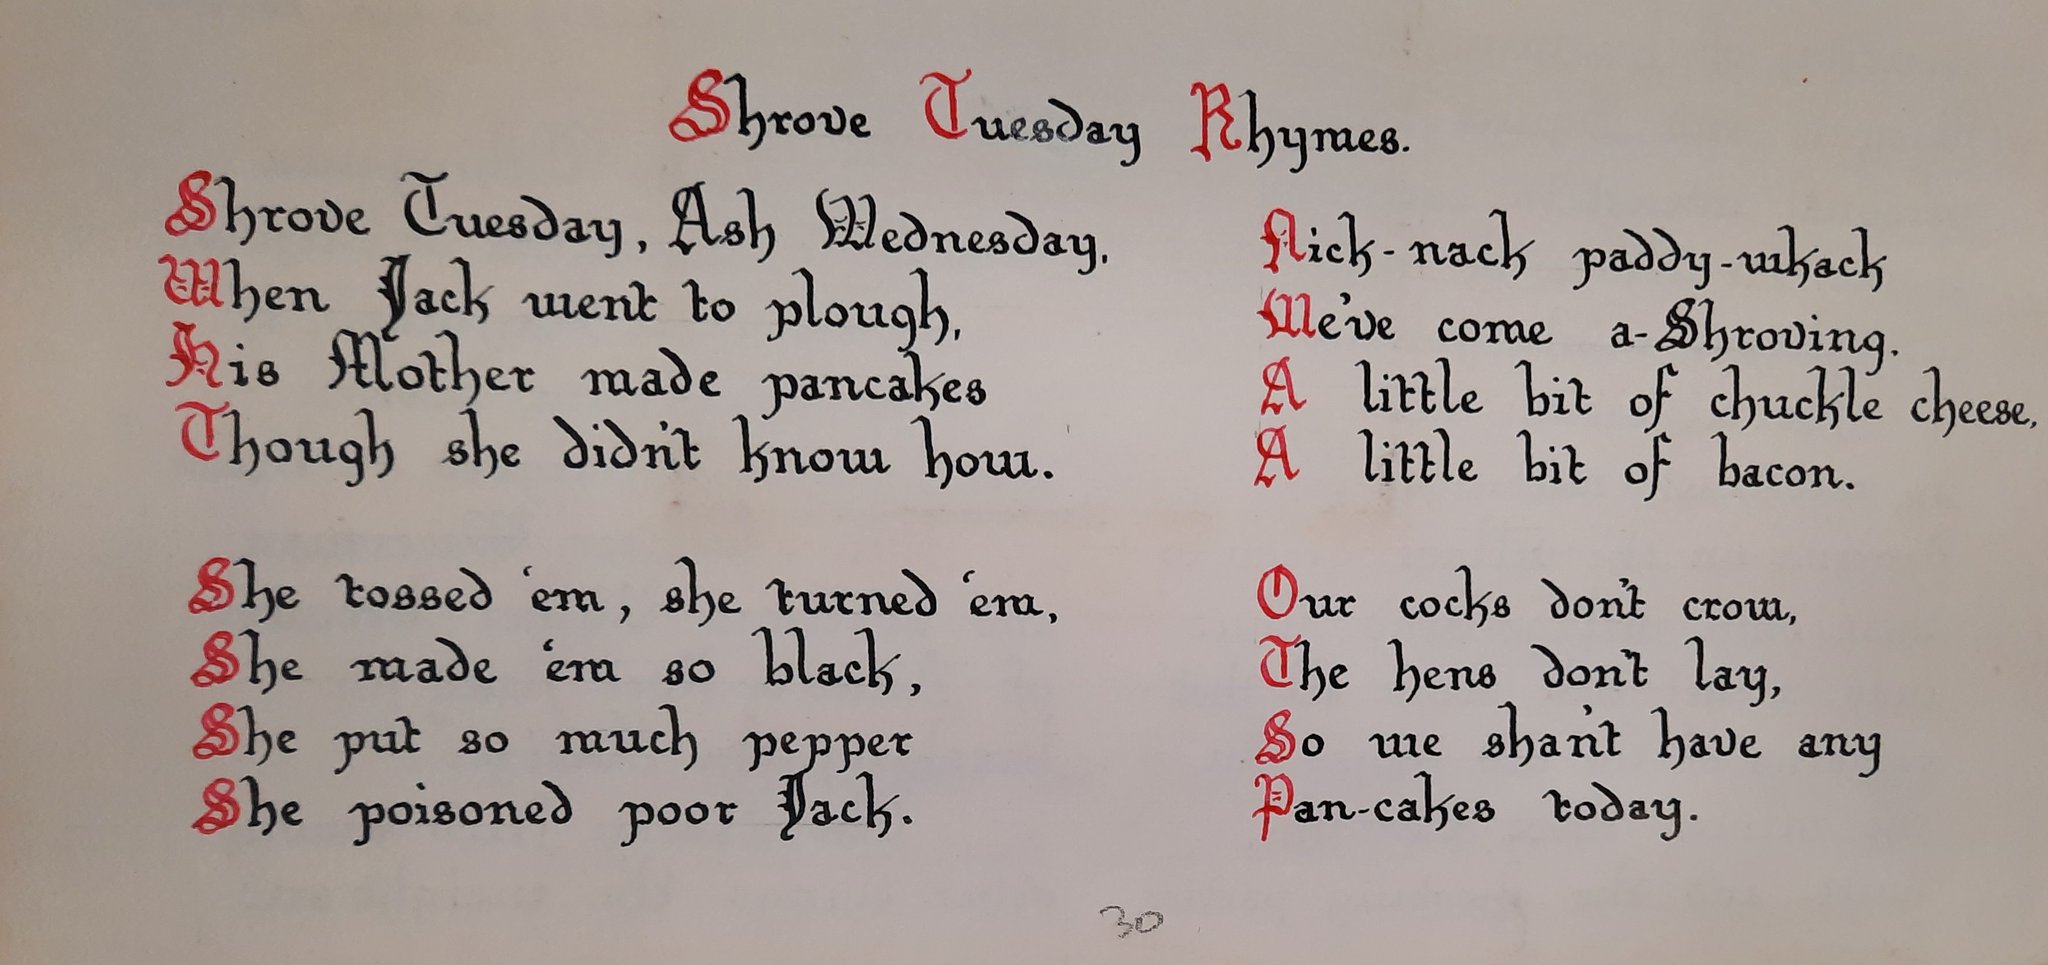 Shrove Tuesday Rhymes.
Shrove Tuesday, Ash Wednesday,
When Jack went to plough,
His Mother made pancakes
Though she didn't know how.
She tossed 'em, she turned 'em,
She made 'em so black,
She put so much pepper
She poisoned poor Jack.
Nick-nack paddy-whack
We've come a-Shroving.
A little bit of chuckle cheese,
A little bit of bacon.
Our cocks don't crow,
The hens don't lay,
So we shan't have any
Pan-cakes today.
30